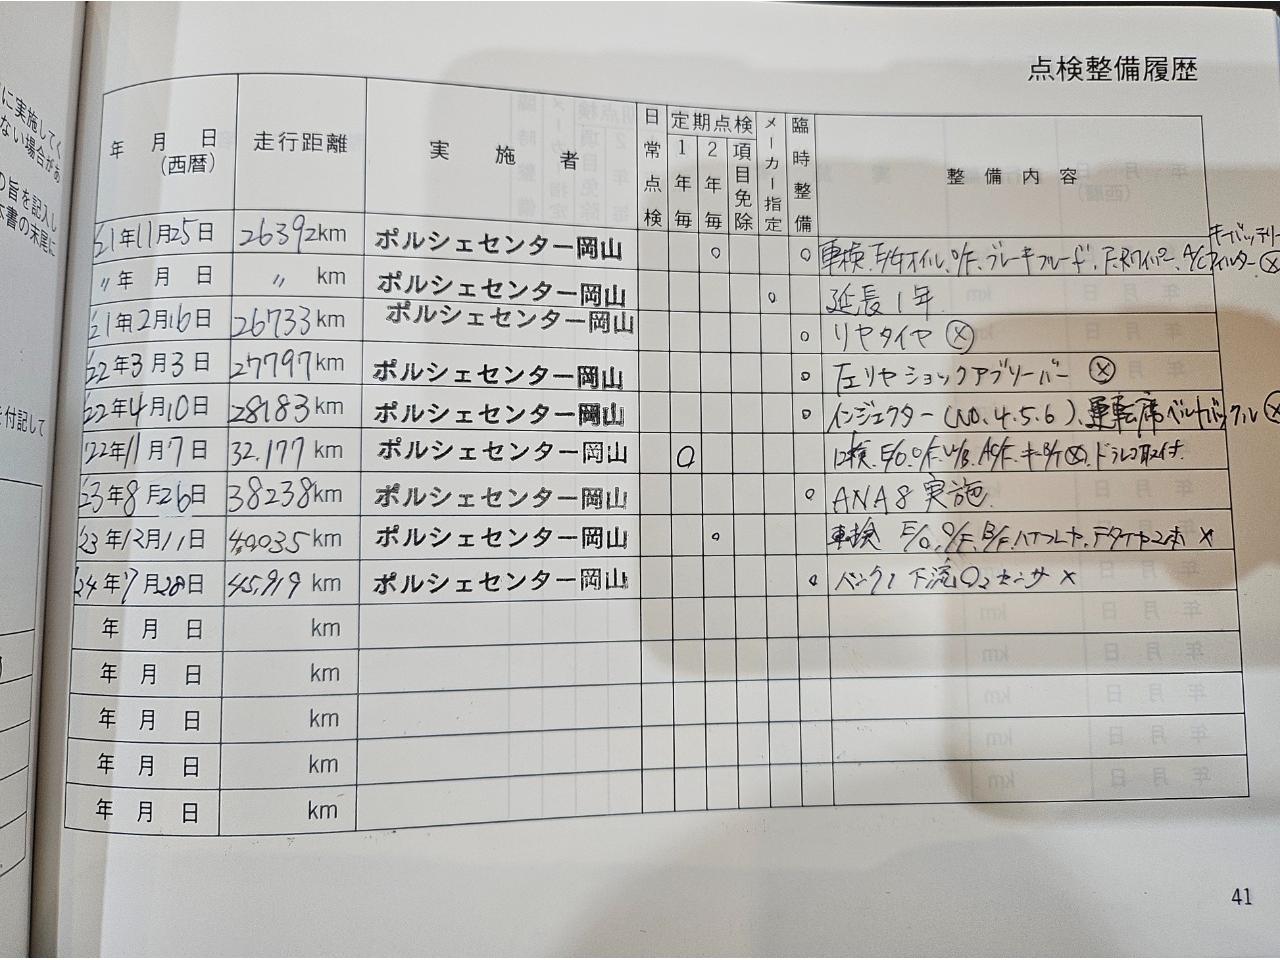 に実施してく
ない場合があ
の旨を記入し
本書の末尾に
を付記して
点検整備履歴
年 月 日 (西暦) 走行距離 実施者 日常点検 定期点検 1年毎 2年毎 項目免除 メーカー指定 臨時整備 整備内容
キーバッテリー
'21年11月25日 26392km ポルシェセンター岡山 ○ ○ 車検、E/gオイル、O/F、ブレーキフルード、F.Rワイパー、A/Cフィルター ⓧ
〃年 月 日 〃 km ポルシェセンター岡山 ○ 延長1年
'21年2月16日 26733km ポルシェセンター岡山 ○ リヤタイヤ ⓧ
'22年3月3日 27797km ポルシェセンター岡山 ○ 左リヤショックアブソーバー ⓧ
'22年4月10日 28183km ポルシェセンター岡山 ○ インジェクター(NO.4.5.6)、運転席ベルトバックル ⓧ
'22年11月7日 32,177km ポルシェセンター岡山 ○ 12検、E/O、O/F、W/B、AC/F、キーB/T ⓧ、ドラレコ取付
'23年8月26日 38238km ポルシェセンター岡山 ○ ANA8 実施
'23年12月11日 40035km ポルシェセンター岡山 ○ 車検 E/O、O/F、B/F、Fタイヤ2本 ×
'24年7月28日 45,919km ポルシェセンター岡山 ○ バンク1 下流O₂センサ ×
年 月 日 km
年 月 日 km
年 月 日 km
年 月 日 km
年 月 日 km
41